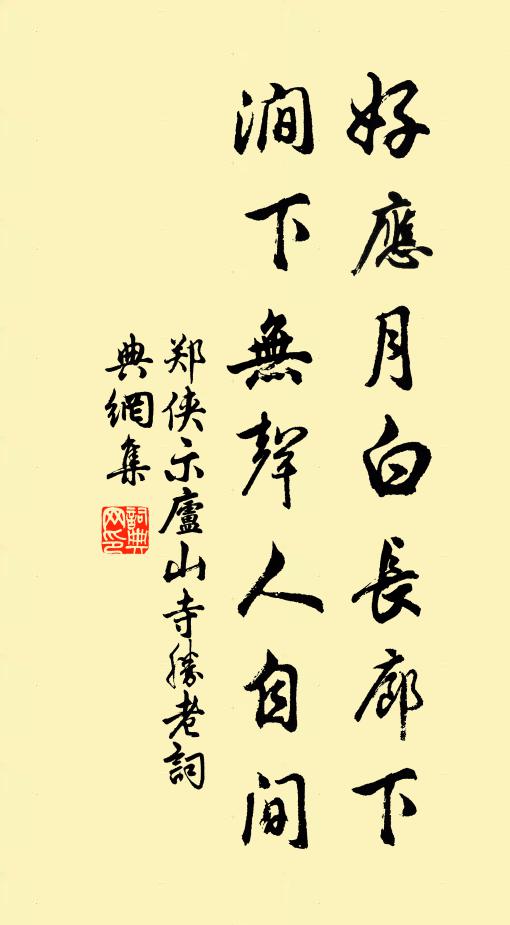 好應月白長廊下
澗下無聲人自间
郑侠示廬山寺勝老詞
典網集
詞典網印